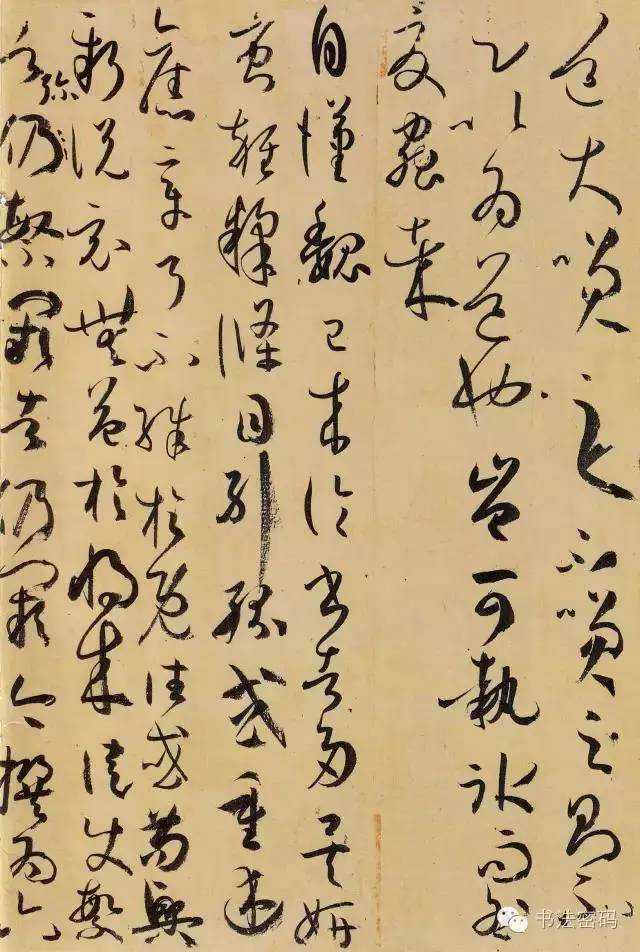 道大笑之不笑之則不
足以為道也豈可執冰而咎
夏蟲哉
自漢魏已來論書者多矣妍
蚩雜糅條目糾紛或重述
舊章了不殊於既往或苟興
新說竟無益於將來徒使繁
者彌仍繁闕者仍闕今撰為六
书法密码